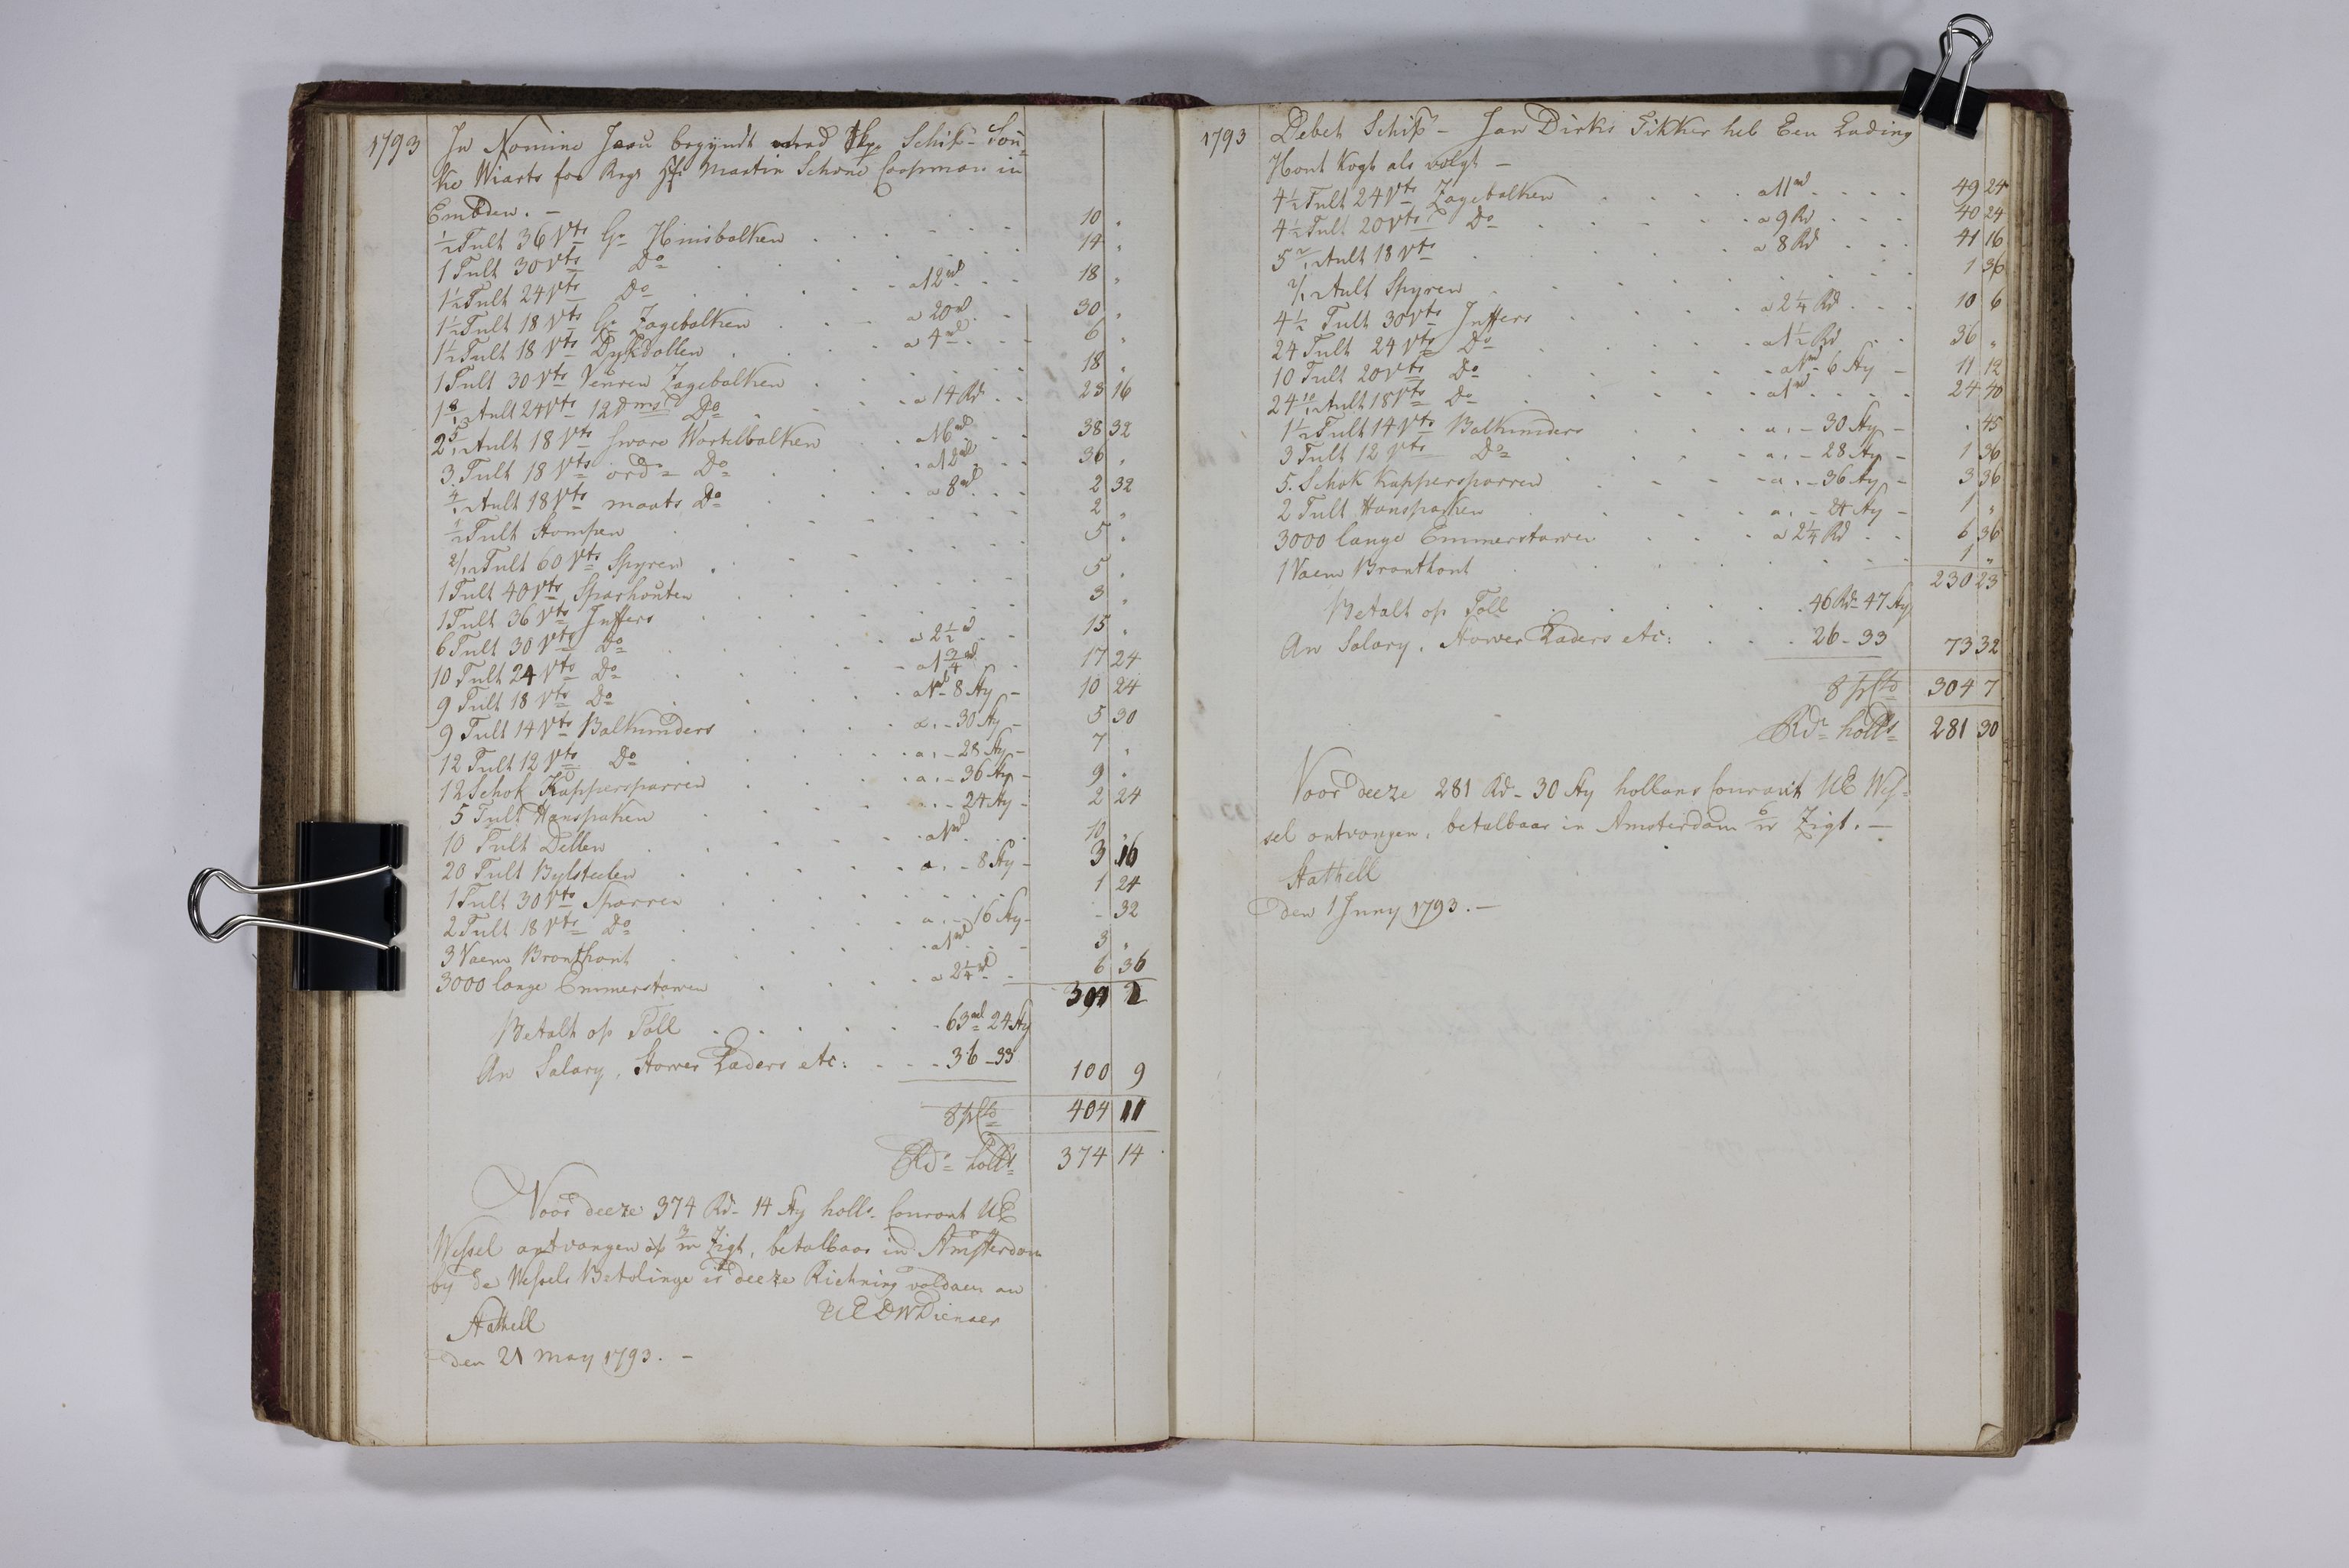 1793 In Nomine Jesu begÿndt Schif- Son=
ke Wiarts for Regs Hr Martin Schone Coopman in
Embden. -
1/2 Tult 36 Vts Gr Huisbalken 10 "
1 Tult 30 Vts Do 14 "
1 1/2 Tult 24 Vts Do a 12 rd 18 "
1 1/2 Tult 18 Vts Gr Zagebalken a 20 rd 30 "
1 1/2 Tult 18 Vts Dykdollen a 4 rd 6 "
1 Tult 30 Vts Venren Zagebalken 18 "
1 8/12 Tult 24 Vts 12 Dms Do a 14 Rd 23 16
2 5/12 Tult 18 Vts sware Wortelbalken a 16 rd 38 32
3 Tult 18 Vts ordr Do a 12 rd 36 "
4/12 Tult 18 Vts maats Do a 8 rd 2 32
1/2 Tult Stompen 2 "
2/12 Tult 60 Vts Spyren 5 "
1 Tult 40 Vts Sparhouten 5 "
1 Tult 36 Vts Juffers 3 "
6 Tult 30 Vts Do a 2 1/2 rd 15 "
10 Tult 24 Vts Do a 1 3/4 rd 17 24
9 Tult 18 Vts Do a 1 rd - 8 sty - 10 24
9 Tult 14 Vts Balkunders a " - 30 sty - 5 30
12 Tult 12 Vts Do a " - 28 sty - 7 "
12 Schok Kappersparren a " - 36 sty - 9 "
5 Tult Hanspaken " - 24 sty - 2 24
10 Tult Dellen a 1 rd 10 "
20 Tult Bylsteelen a " - 8 sty - 3 16
1 Tult 30 Vts Sparren 1 24
2 Tult 18 Vts Do a " - 16 sty - - 32
3 Vaem Branthout a 1 rd 3 "
3000 lange Emmerstawen a 2 1/4 rd 6 36
304 2
Betalt op Toll 63 rd 24 sty
An Salary, Stower Laders etc: 36 - 33 100 9
8 pCto 404 11
Rdr holls 374 14
Voor deeze 374 Rd - 14 sty holls Courant UE
Wessel ontvangen op 3/m Zigt, betalbaar in Amsterdam
by de Wessels Betalinge is deeze Richning voldaen an
Stathell UEDWDienaer
den 21 may 1793. -
1793 Debet Schif- Jan Dirks Fikker heb Een Lading
Hout Kogt als volgt -
4 1/2 Tult 24 Vts Zagebalken a 11 rd 49 24
4 1/2 Tult 20 Vts Do a 9 Rd 40 24
5 2/12 Tult 18 Vts a 8 Rd 41 16
2/12 Tult Spyren 1 36
4 1/2 Tult 30 Vts Juffers a 2 1/4 Rd 10 6
24 Tult 24 Vts Do a 1 1/2 Rd 36 "
10 Tult 20 Vts Do a 1 rd - 6 sty - 11 12
24 10/12 Tult 18 Vts Do a 1 rd 24 40
1 1/2 Tult 14 Vts Balkunders a " - 30 sty - " 45
3 Tult 12 Vts Do a " - 28 sty - 1 36
5 Schok Kappersparren a " - 36 sty - 3 36
2 Tult Hanspaken a " - 24 sty - 1 "
3000 lange Emmerstawen a 2 1/4 Rd 6 36
1 Vaem Branthout 1 "
230 23
Betalt op Toll 46 Rdr 47 sty
An Salary, Stower Laders etc: 26 - 33 73 32
8 pCto 304 7
Rdr holls 281 30
Voor deeze 281 Rd - 30 sty hollans Courant UE Wes=
sel ontvangen, betalbaar in Amsterdam 6/w Zigt. -
Stathell
den 1 Juny 1793. -